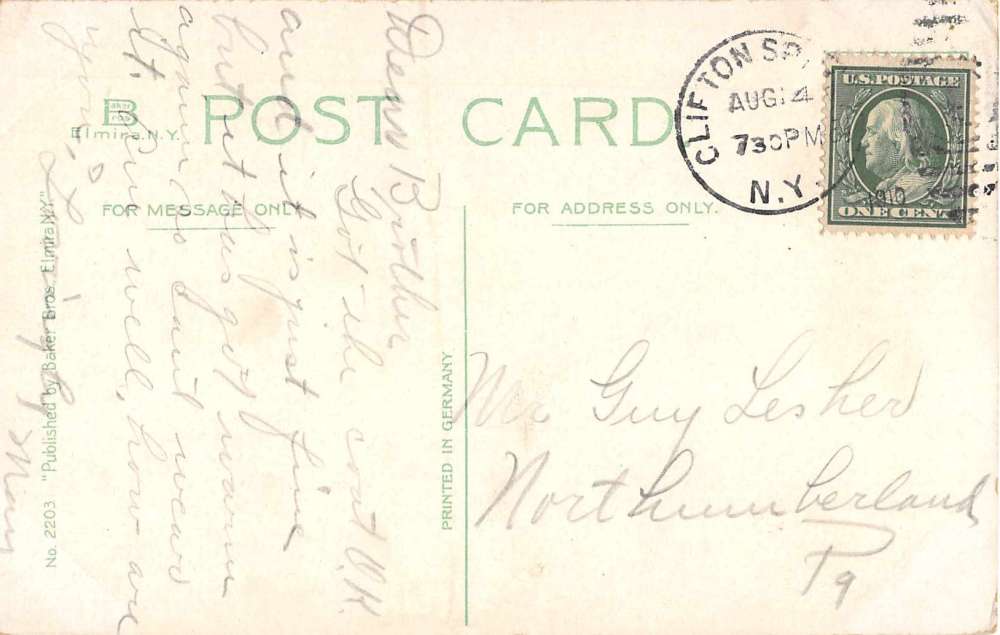 Dear Brother
Got the coat O.K.
and it is just fine
but it has got warm
again so can't wear
it. Am well, how are
you,
POST CARD
B
Baker Bros
Elmira, N.Y.
FOR MESSAGE ONLY
FOR ADDRESS ONLY.
CLIFTON SP
AUG 24
730 PM
N.Y.
1910
U.S. POSTAGE
ONE CENT
Mr Guy Lesher
Northumberland
Pa
PRINTED IN GERMANY
No. 2203 "Published by Baker Bros. Elmira N.Y."